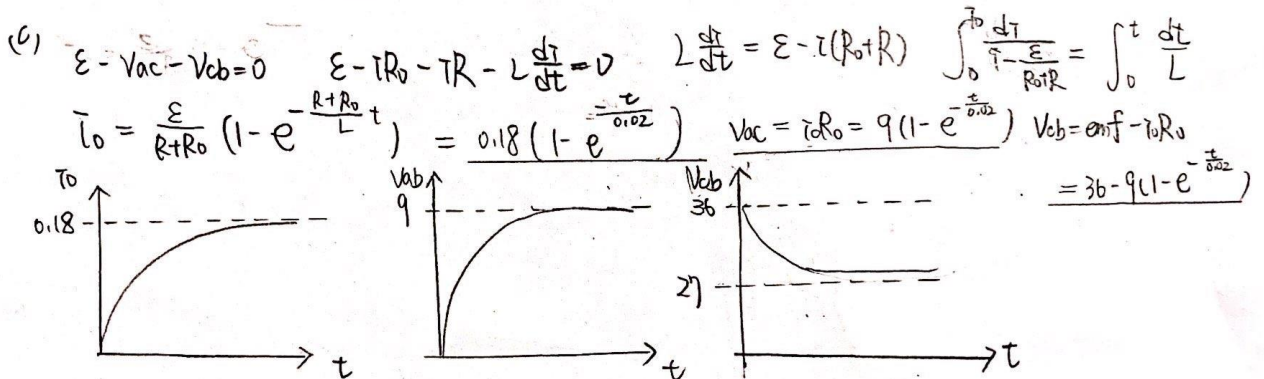 (c) ε - Vac - Vcb = 0    ε - iR₀ - iR - L di/dt = 0    L di/dt = ε - i(R₀+R)    ∫₀^i₀ di/(i - ε/(R₀+R)) = ∫₀^t dt/L
i₀ = ε/(R+R₀) (1 - e^(-(R+R₀)/L t)) = 0.18 (1 - e^(-t/0.02))    Vac = i₀R₀ = 9(1 - e^(-t/0.02))    Vcb = emf - i₀R₀
= 36 - 9(1 - e^(-t/0.02))
i₀
0.18
t
Vab
9
t
Vcb
36
27
t